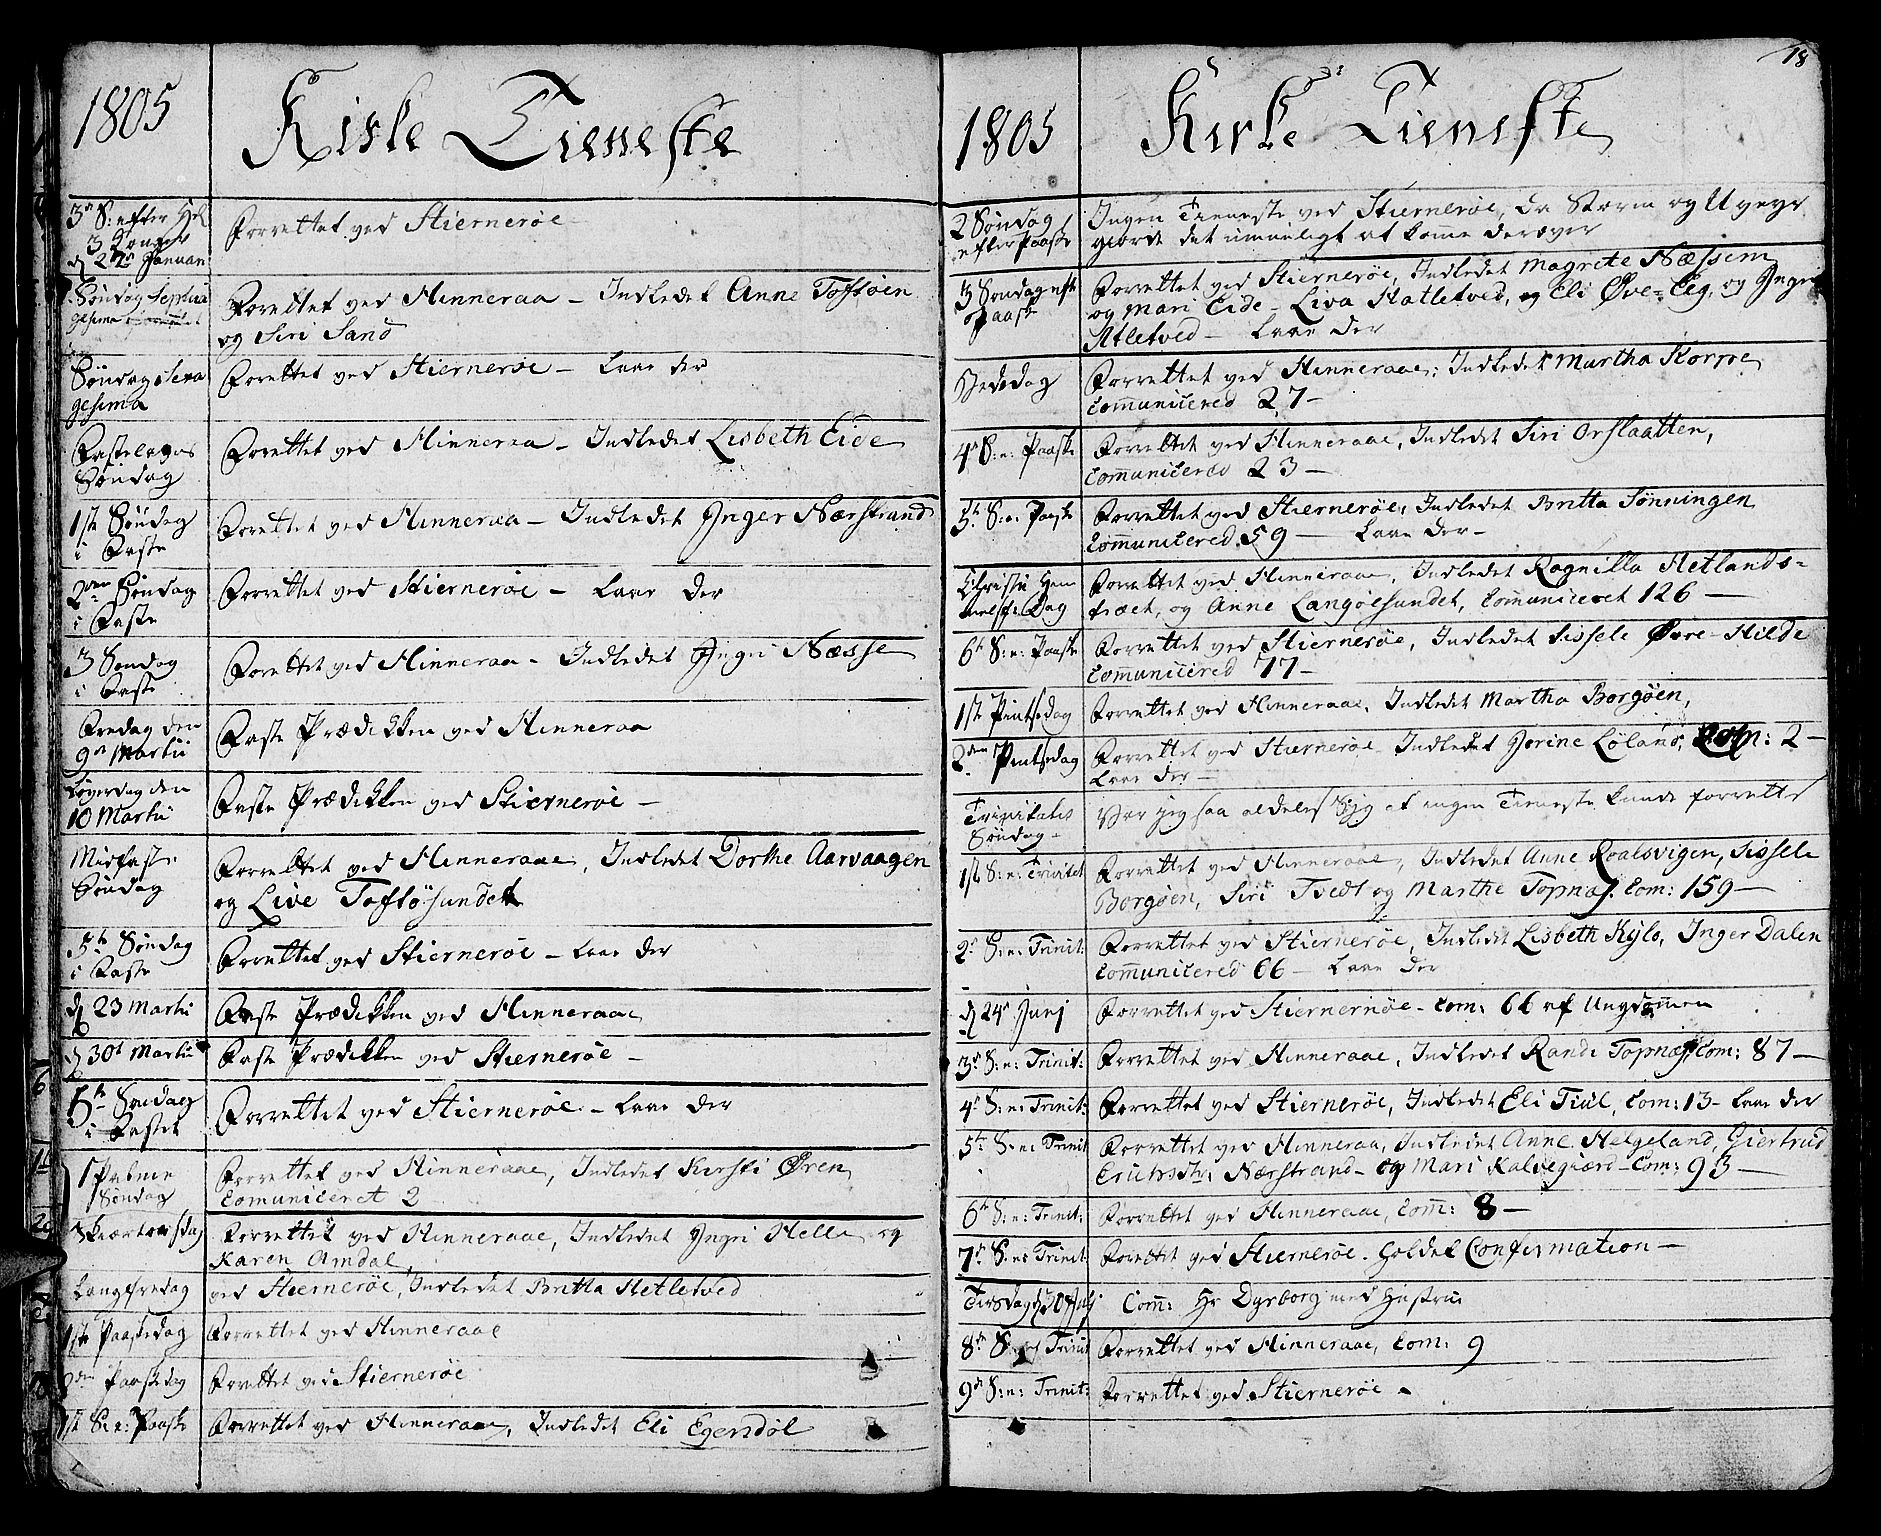 1805
Kirke Tieneste
3de S: efter Hel
3 Konger
Forrettet ved Stiernerøe
d 27 Januari
Søndag Septua
gesima
Forrettet ved Hinneraa – Indledet Anne Toftøen
og Siri Sand
Søndag Sexa
gesima
Forrettet ved Stiernerøe – Laae der
Fastelavns
Søndag
Forrettet ved Hinneraa – Indledet Lisbeth Eide
1ste Søndag
i Faste
Forrettet ved Hinneraa – Indledet Inger Nærstrand
2den Søndag
i Faste
Forrettet ved Stiernerøe – Laae der
3 Søndag
i Faste
Forrettet ved Hinneraa – Indledet Ingri Næsse
Fredag den
9de Martii
Faste Prædikken ved Hinneraa
Løverdag den
10 Martii
Faste Prædikken ved Stiernerøe –
Midfaste
Søndag
Forrettet ved Hinneraae, Indledet Dorthe Aarvaagen
og Live Toftøsundet
5te Søndag
i Faste
Forrettet ved Stiernerøe – Laae der
d 23 Martii
Faste Prædikken ved Hinneraae
d 30t Martii
Faste Prædikken ved Stiernerøe –
Søndag
i Faste
Forrettet ved Stiernerøe – Laae der
Palme
Søndag
Forrettet ved Hinneraae, Indledet Kirsti Øren
Comuniceret 2
Skiærtorsdag
Forrettet ved Hinneraae, Indledet Ingri Helle og
Karen Amdal,
Langfredag
ved Stiernerøe, Indledet Britta Hetletved
1ste Paaskedag
Forrettet ved Hinneraae
2den Paaskedag
Forrettet ved Stiernerøe
1ste S: e: Paaske
Forrettet ved Hinneraae, Indledet Eli Egendøl
18
1805
Kirke Tieneste
2 Søndag
efter Paaske
Ingen Tieneste ved Stiernerøe, da Storm og Uveyr
giorde det umueligt at komme derover
3 Søndag eft
Paaske
Forrettet ved Stiernerøe, Indledet Magrete Næssem
og Mari Eide – Liva Hatletved, og Eli Øvre-Eeg, og Inger
Atletved – Laae der
Bededag
Forrettet ved Hinneraae; Indledet Martha Korroe
Communicered 27 –
4de S: e: Paaske
Forrettet ved Hinneraae, Indledet Siri Orslaatten,
Communicered 23 –
5te S: e: Paaske
Forrettet ved Stiernerøe, Indledet Britta Sønningen
Communicered 59 – Laae der –
Christi Him
melf: Dag
Forrettet ved Hinneraae, Indledet Ragnilla Hetlands-
træet, og Anne Langøesundet, Communiceret 126 –
6te S: e: Paaske
Forrettet ved Stiernerøe, Indledet Sissele Øvre-Hilde
Communicered 77 –
1ste Pintsedag
Forrettet ved Hinneraae, Indledet Martha Borgøen,
2den Pintsedag
Forrettet ved Stiernerøe Indledet Jorine Løland, Com: 2 –
Laae der –
Trinitatis
Søndag –
Var jeg saa aldeles Syg at ingen Tieneste kunde forrettes
1ste S: e: Trinitet
Forrettet ved Hinneraae, Indledet Anne Roalsvigen, Sissele
Borgøen, Siri Tvedt og Marthe Topnæs. Com: 159 –
2de S: e: Trinit:
Forrettet ved Stiernerøe, Indledet Lisbeth Kylo, Inger Dalen
Communicered 66 – Laae der
d 24de Junj
Forrettet ved Stiernerøe – Com: 66 af Ungdommen
3de S: e: Trinit:
Forrettet ved Hinneraae, Indledet Randi Topnæs, Com: 87 –
4de S: e: Trinit:
Forrettet ved Stiernerøe, Indledet Eli Tiul, Com: 13 – Laae der
5te S: e: Trinit
Forrettet ved Hinneraa, Indledet Anne Helgeland, Giertrud
Erichsdtr: Nærstrand – og Mari Kalvegiærd – Com: 93 –
6te S: e: Trinit:
Forrettet ved Hinneraae, Com: 8 –
7de S: e: Trinit:
Forrettet ved Stiernerøe. Holdet Confirmation –
Tirsdag d 30 Julj
Com: Hr Dyrborg med Hustrue
8de S: e: Trinit
Forrettet ved Hinneraae, Com: 9
9de S: e: Trinit:
Forrettet ved Stiernerøe –